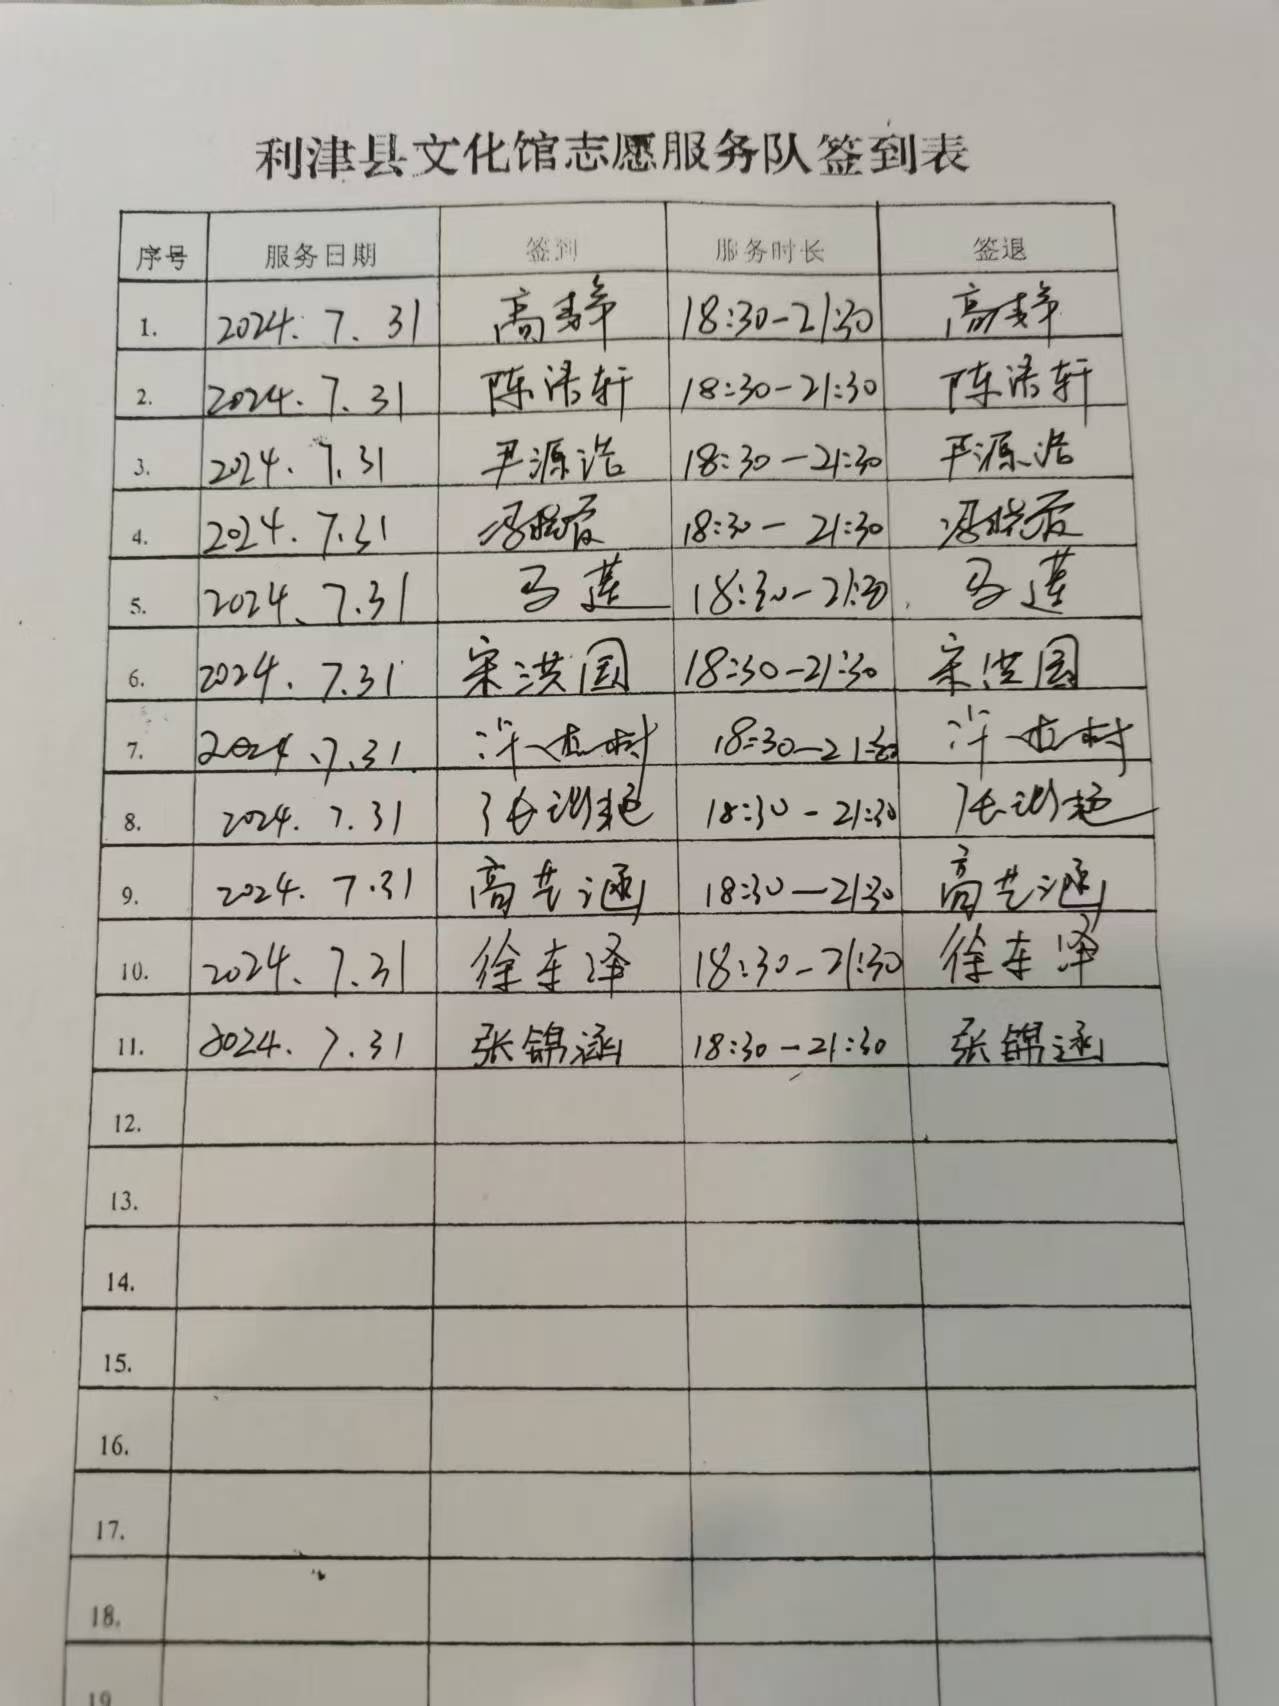 利津县文化馆志愿服务队签到表
序号 服务日期 签到 服务时长 签退
1. 2024.7.31 高 18:30-21:30 高
2. 2024.7.31 陈浩轩 18:30-21:30 陈浩轩
3. 2024.7.31 尹源浩 18:30-21:30 尹源浩
4. 2024.7.31 冯晓霞 18:30-21:30 冯晓霞
5. 2024.7.31 马莲 18:30-21:30 马莲
6. 2024.7.31 宋洪国 18:30-21:30 宋洪国
7. 2024.7.31 18:30-21:30
8. 2024.7.31 张 18:30-21:30 张
9. 2024.7.31 高艺涵 18:30-21:30 高艺涵
10. 2024.7.31 徐东泽 18:30-21:30 徐东泽
11. 2024.7.31 张锦涵 18:30-21:30 张锦涵
12.
13.
14.
15.
16.
17.
18.
19